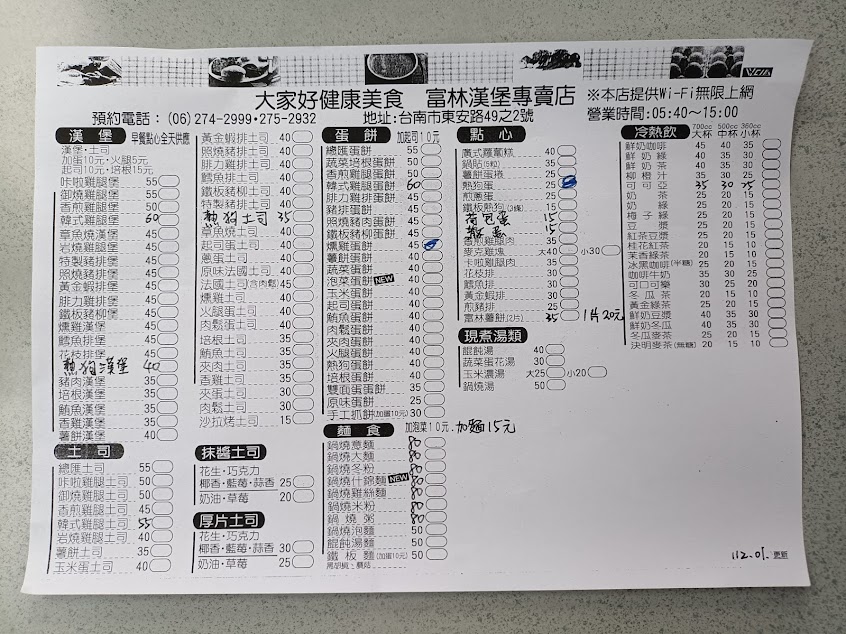 大家好健康美食 富林漢堡專賣店 ※本店提供Wi-Fi無限上網
預約電話：(06)274-2999•275-2932 地址:台南市東安路49之2號 營業時間:05:40~15:00
漢堡 早餐點心全天供應
漢堡·土司
加蛋10元·火腿5元
起司10元·培根15元
咔啦雞腿堡 55
御燒雞腿堡 50
香煎雞腿堡 50
韓式雞腿堡 60
章魚燒漢堡 45
岩燒雞腿堡 45
特製豬排堡 45
照燒豬排堡 45
黃金蝦排堡 45
腓力雞排堡 45
鐵板豬柳堡 45
燻雞漢堡 45
鱈魚排堡 45
花枝排堡 45
熱狗漢堡 40
豬肉漢堡 35
培根漢堡 35
鮪魚漢堡 35
香雞漢堡 35
薯餅漢堡 40
土司
總匯土司 55
咔啦雞腿土司 50
御燒雞腿土司 50
香煎雞腿土司 45
韓式雞腿土司 55
岩燒雞腿土司 40
薯餅土司 35
玉米蛋土司 40
黃金蝦排土司 40
照燒豬排土司 40
腓力雞排土司 40
鱈魚排土司 40
鐵板豬柳土司 40
特製豬排土司 40
熱狗土司 35
章魚燒土司 40
起司蛋土司 30
蔥蛋土司 30
原味法國土司 40
法國土司(含肉鬆) 45
燻雞土司 40
火腿蛋土司 30
肉鬆蛋土司 30
培根土司 35
鮪魚土司 35
夾肉土司 35
香雞土司 35
夾蛋土司 30
肉鬆土司 30
沙拉烤土司 15
抹醬土司
花生·巧克力
椰香·藍莓·蒜香 25
奶油·草莓 20
厚片土司
花生·巧克力
椰香·藍莓·蒜香 30
奶油·草莓 25
蛋餅 加起司10元
總匯蛋餅 55
蔬菜培根蛋餅 50
香煎雞腿蛋餅 50
韓式雞腿蛋餅 60
腓力雞排蛋餅 45
豬排蛋餅 45
照燒豬肉蛋餅 45
鐵板豬柳蛋餅 45
燻雞蛋餅 45
薯餅蛋餅 40
蔬菜蛋餅 40
泡菜蛋餅 NEW 40
玉米蛋餅 40
起司蛋餅 40
鮪魚蛋餅 40
肉鬆蛋餅 40
夾肉蛋餅 40
火腿蛋餅 40
熱狗蛋餅 40
培根蛋餅 40
雙面蛋蛋餅 40
原味蛋餅 30
手工抓餅(加蛋10元) 30
麵食 加泡菜10元.加麵15元
鍋燒意麵 80
鍋燒大麵 80
鍋燒冬粉 80
鍋燒什錦麵 NEW 80
鍋燒雞絲麵 80
鍋燒米粉 80
鍋燒粥 80
鍋燒泡麵 50
餛飩湯麵 50
鐵板麵(加蛋10元) 50
黑胡椒·蘑菇
點心
廣式蘿蔔糕 40
鍋貼(5粒) 35
薯餅蛋捲 35
熱狗蛋 25
煎蔥蛋 25
鐵板熱狗(3條) 25
荷包蛋 15
散蛋 15
香煎雞腿肉 35
麥克雞塊 大40 小30
卡啦雞腿肉 35
花枝排 30
鱈魚排 30
黃金蝦排 30
煎豬排 25
富林薯餅(2片) 35 1片20元
現煮湯類
餛飩湯 40
蔬菜蛋花湯 30
玉米濃湯 大25 小20
鍋燒湯 50
冷熱飲 700cc大杯 500cc中杯 360cc小杯
鮮奶咖啡 45 40 35
鮮奶綠 40 35 30
鮮奶茶 40 35 30
柳橙汁 40 35 30
可可亞 35 30 25
奶茶 25 20 15
奶綠 25 20 15
梅子綠 25 20 15
豆漿 25 20 15
紅茶豆漿 25 20 15
桂花紅茶 20 15 10
茉香綠茶 20 15 10
冰黑咖啡(半糖) 25 20 15
咖啡牛奶 35 30 25
可口可樂 30 25 20
冬瓜茶 20 15 10
黃金綠茶 25 20 15
鮮奶豆漿 40 35 30
鮮奶冬瓜 40 35 30
冬瓜麥茶 25 20 15
決明麥茶(無糖) 20 15 10
112.01.更新